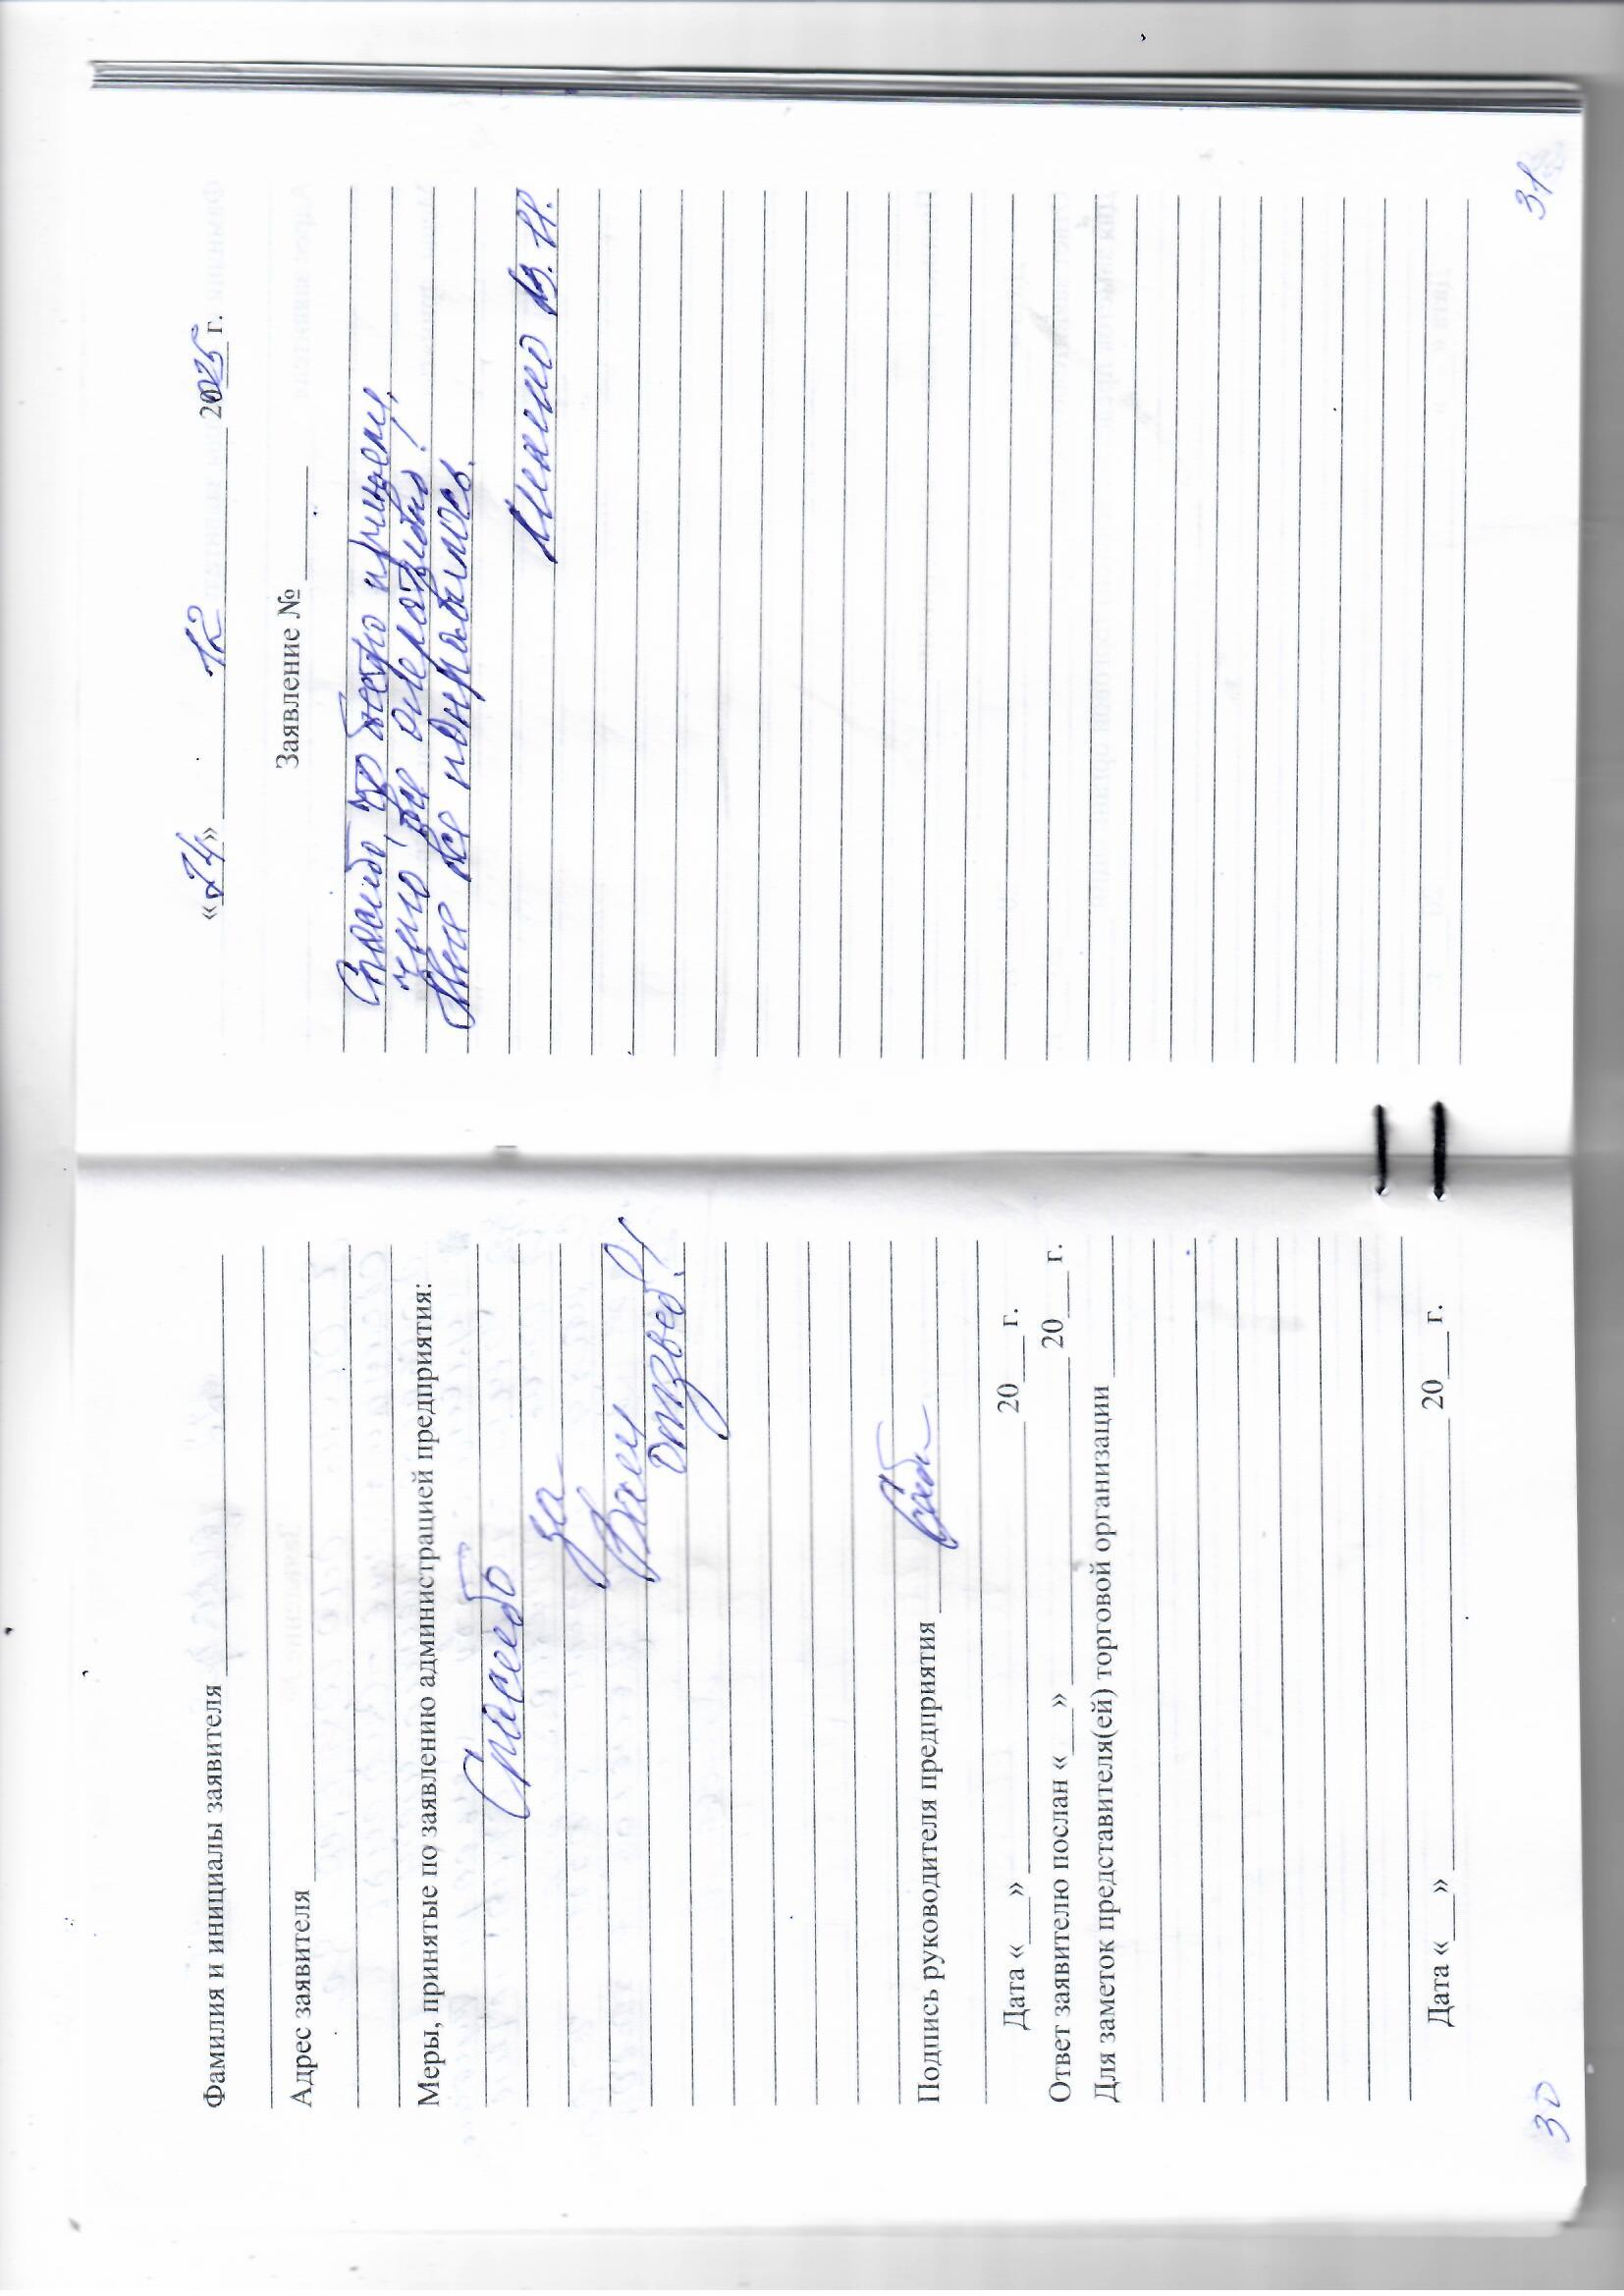 Фамилия и инициалы заявителя
Адрес заявителя
Меры, принятые по заявлению администрацией предприятия:
Спасибо
за
Ваш
отзыв!
Подпись руководителя предприятия
Дата «___» 20___г.
Ответ заявителю послан «___» 20___г.
Для заметок представителя(ей) торговой организации
Дата «___» 20___г.
30
«24» 12 2025 г.
Заявление №
Спасибо, что быстро
все оперативно!
Мне все понравилось.
В. И.
31